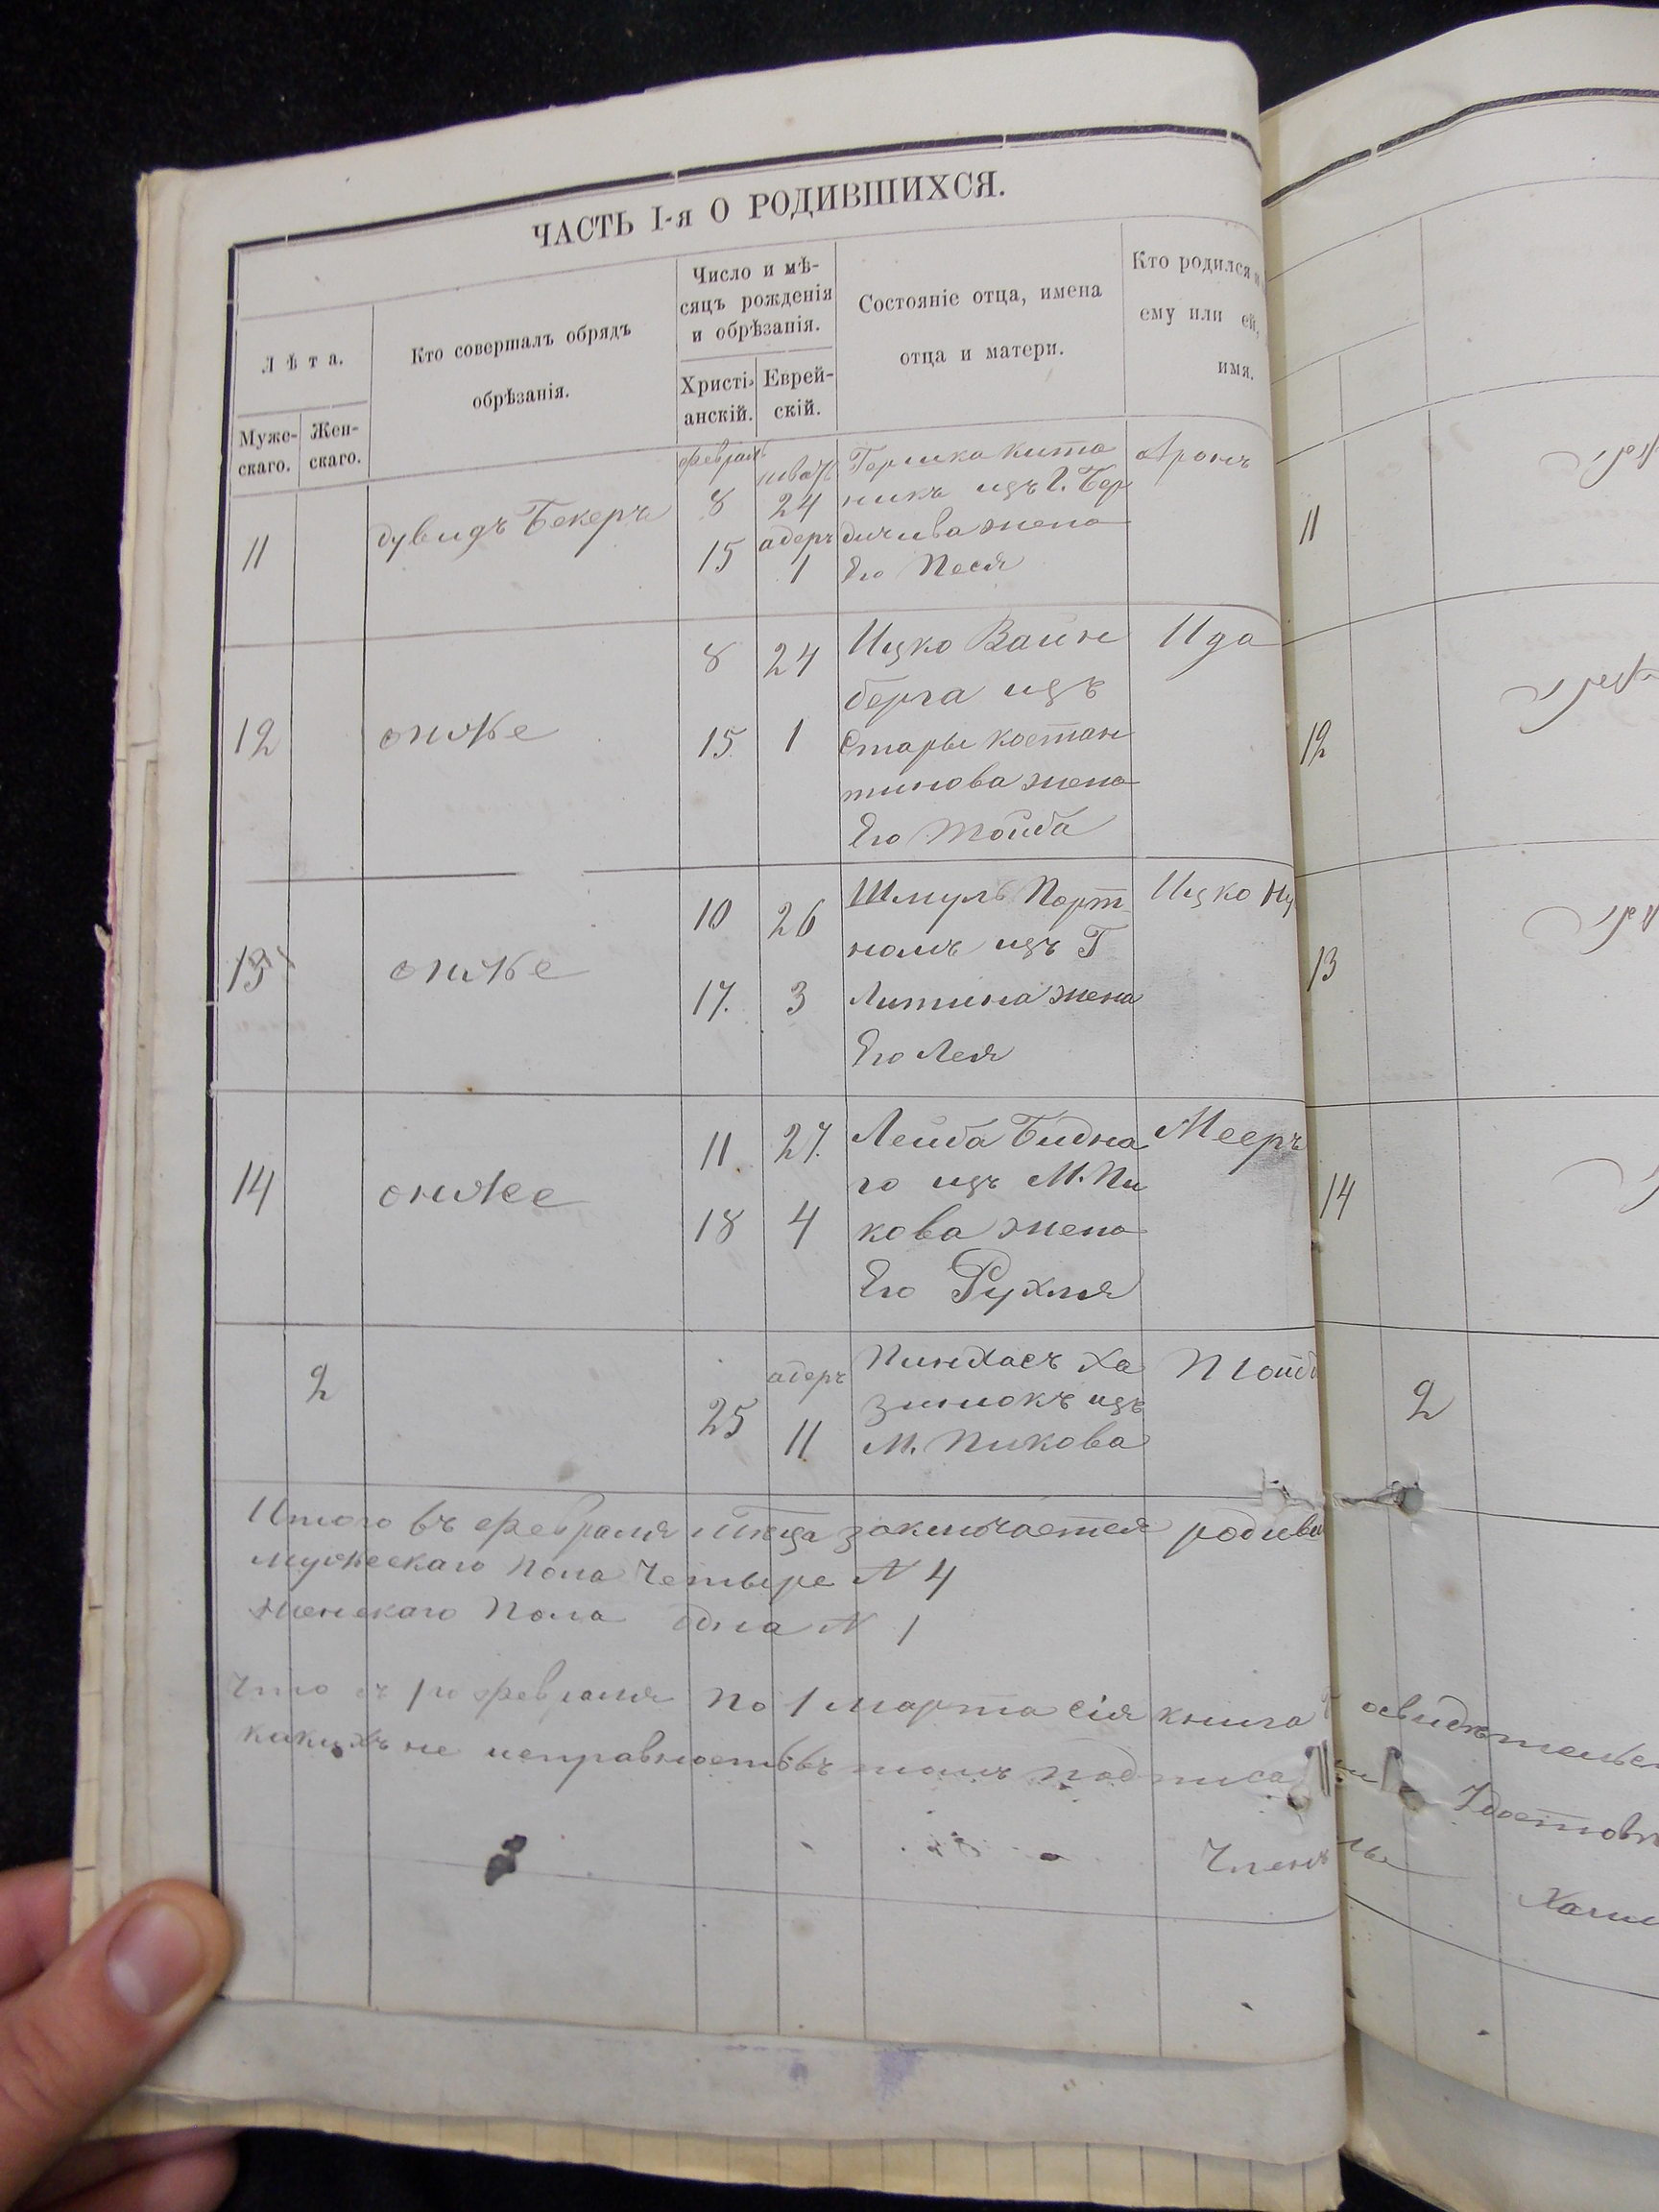 ЧАСТЬ I-я О РОДИВШИХСЯ.
Лѣта.
Муже-
скаго.
Жен-
скаго.
Кто совершалъ обрядъ
обрѣзанія.
Число и мѣ-
сяцъ рожденія
и обрѣзанія.
Христі-
анскій.
Еврей-
скій.
Состояніе отца, имена
отца и матери.
Кто родился и
ему или ей,
имя.
11
дувидъ Бекеръ
февраль
8
15
шватъ
24
адеръ
1
Гершка Кита
никъ изъ Г. Бер
дичива жена
Его Песя
Аронъ
11
12
онже
8
15
24
1
Ицко Вайн
берга изъ
Стары костан
тинова жена
Его Тойба
Ида
12
13
онже
10
17.
26
3
Шмуль Порт
номъ изъ Г
Литина жена
Его Лея
Ицко Ну
13
14
онже
11
18
27.
4
Лейба Бидна
го изъ М. Пи
кова жена
Его Рухля
Мееръ
14
2
25
адеръ
11
Пинхасъ Ха
зинокъ изъ
М. Пикова
2
Итого въ февраля мѣсяца заключается родивш
мужескаго пола Четыре N 4
женскаго пола одна N 1
Что съ 1го февраля по 1 марта сія книга освидѣтельс
какихъ не исправностъ въ томъ подписа
Удостовѣ
Члены